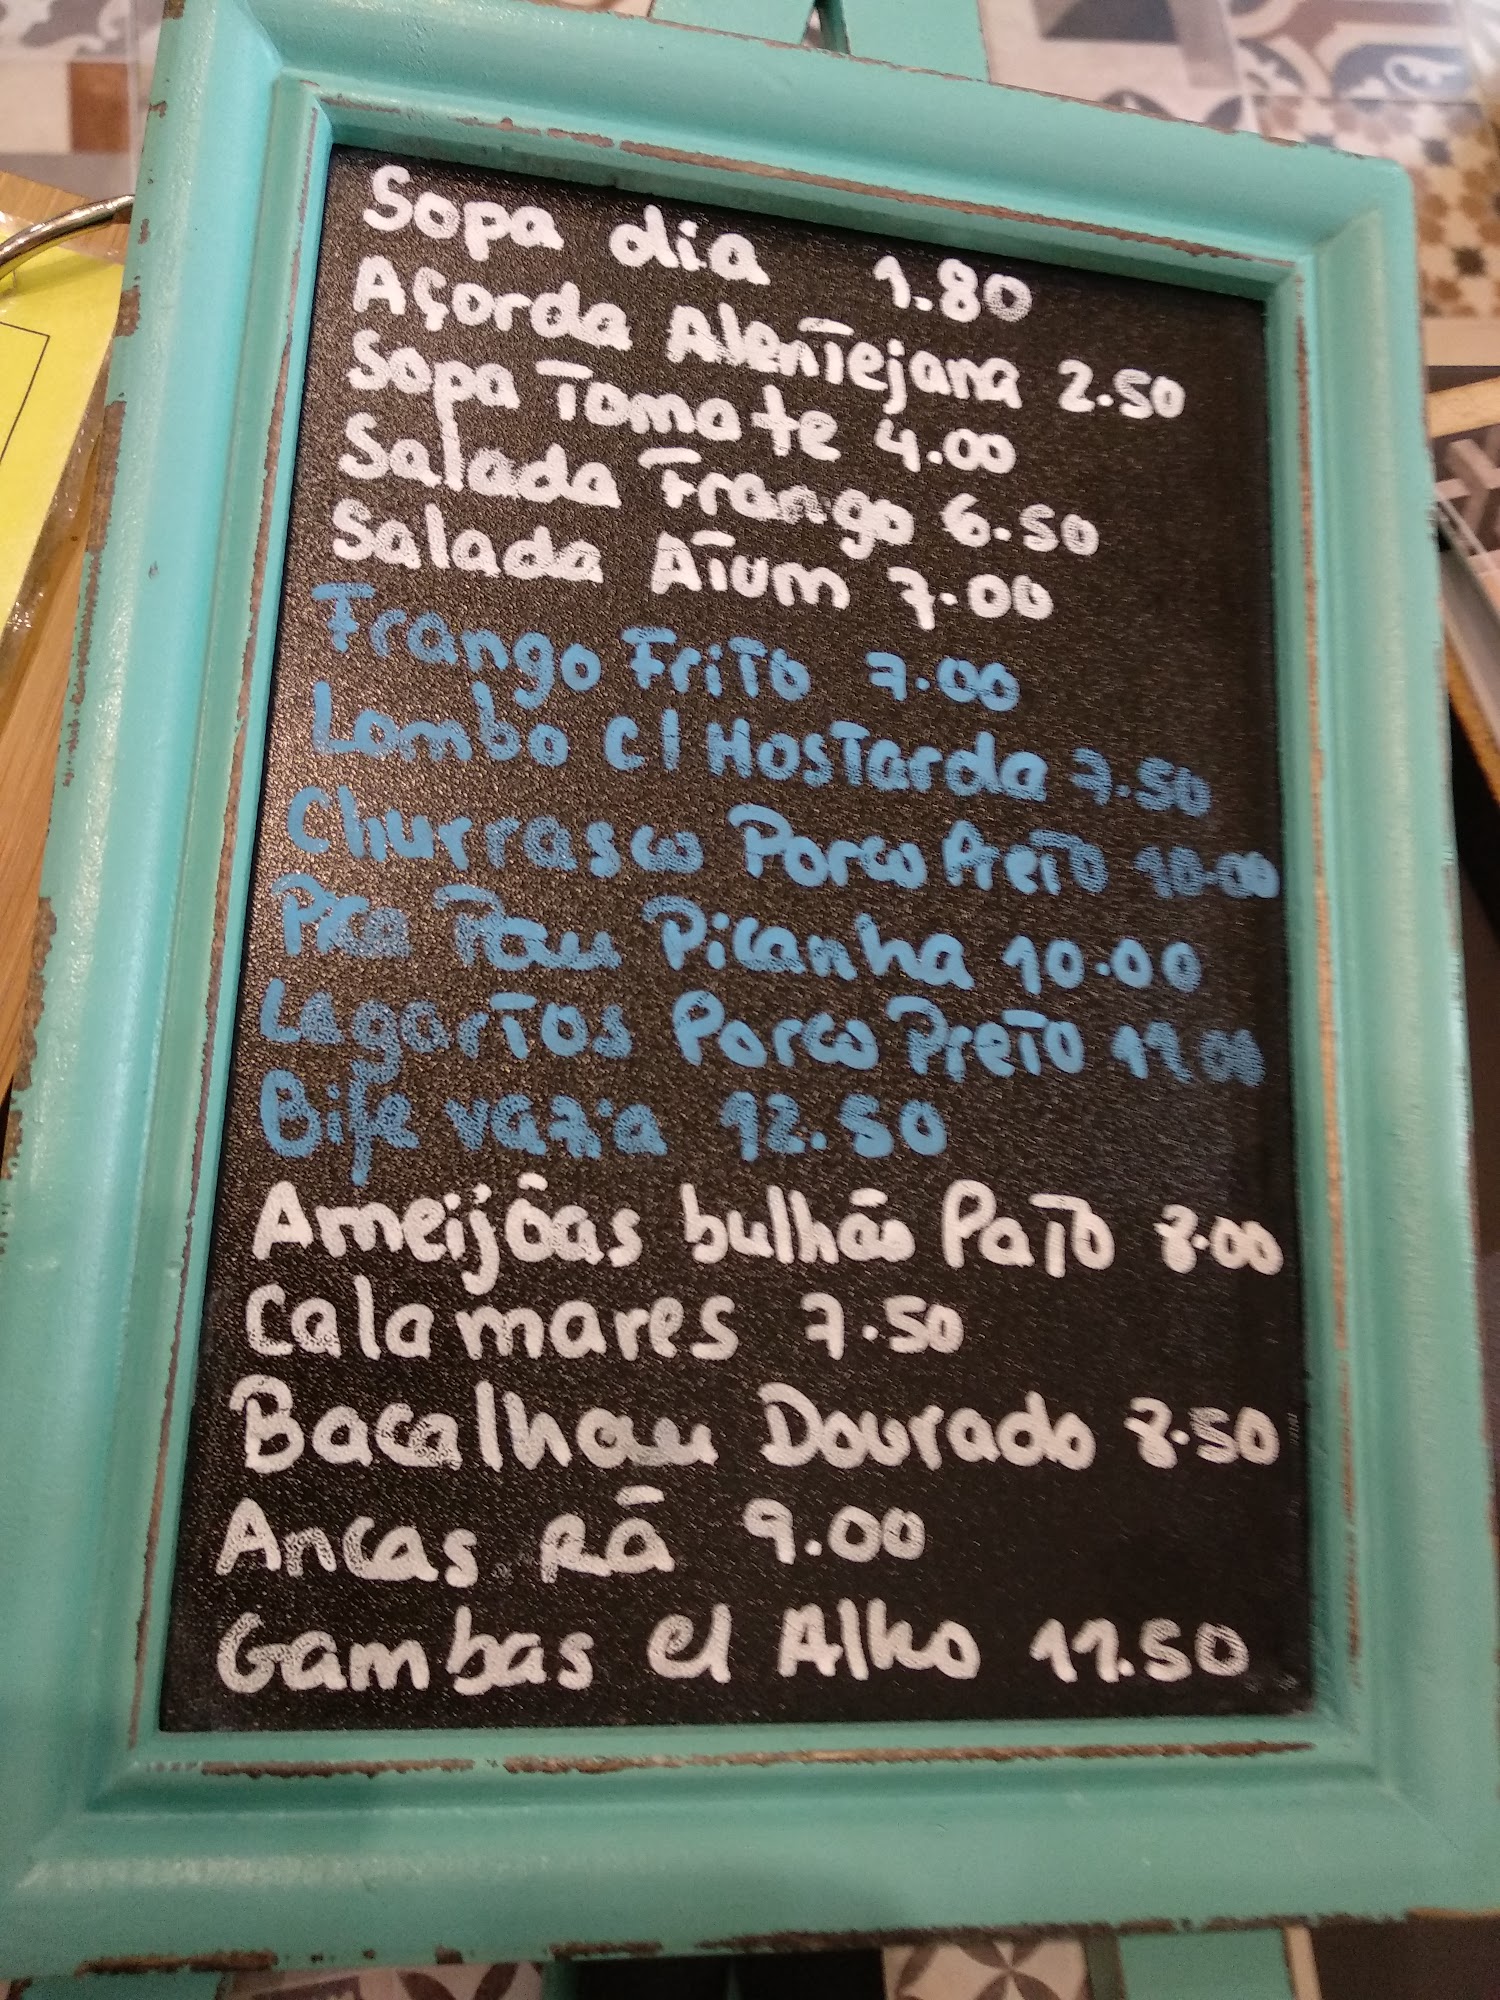 Sopa dia 1.80
Açorda Alentejana 2.50
Sopa Tomate 4.00
Salada Frango 6.50
Salada Atum 7.00
Frango Frito 7.00
Lombo c/ Mostarda 7.50
Churrasco Porco Preto 10.00
Pica Pau Picanha 10.00
Lagartos Porco Preto 11.00
Bife vazia 12.50
Ameijôas bulhão Pato 8.00
Calamares 7.50
Bacalhau Dourado 8.50
Ancas Rã 9.00
Gambas c/ Alho 11.50